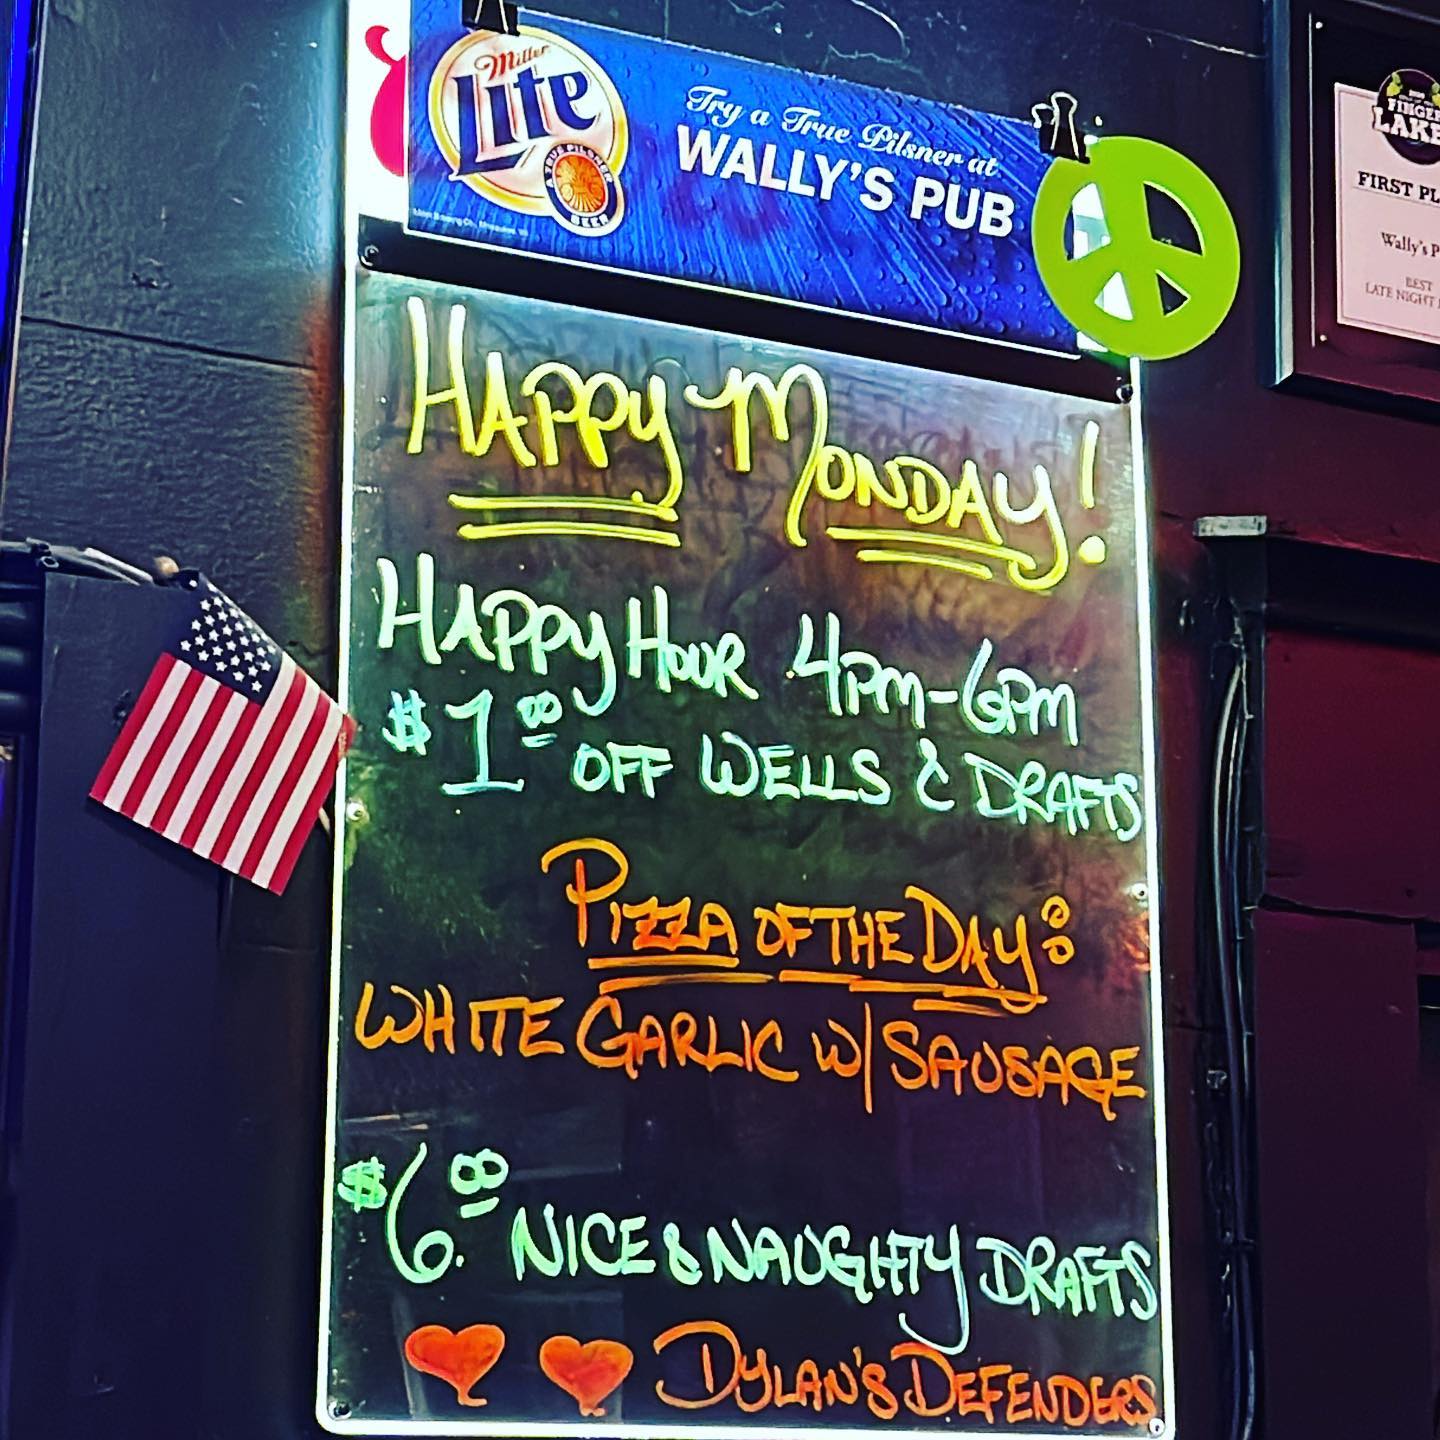 Miller
Lite
A TRUE PILSNER
BEER
Try a True Pilsner at
WALLY'S PUB
FINGER
LAKE
FIRST PL
Wally's P
BEST
LATE NIGHT
HAPPY MONDAY!
HAPPY HOUR 4PM-6PM
$1.00 OFF WELLS & DRAFTS
PIZZA OF THE DAY:
WHITE GARLIC W/ SAUSAGE
$6.00 NICE & NAUGHTY DRAFTS
DYLAN'S DEFENDERS